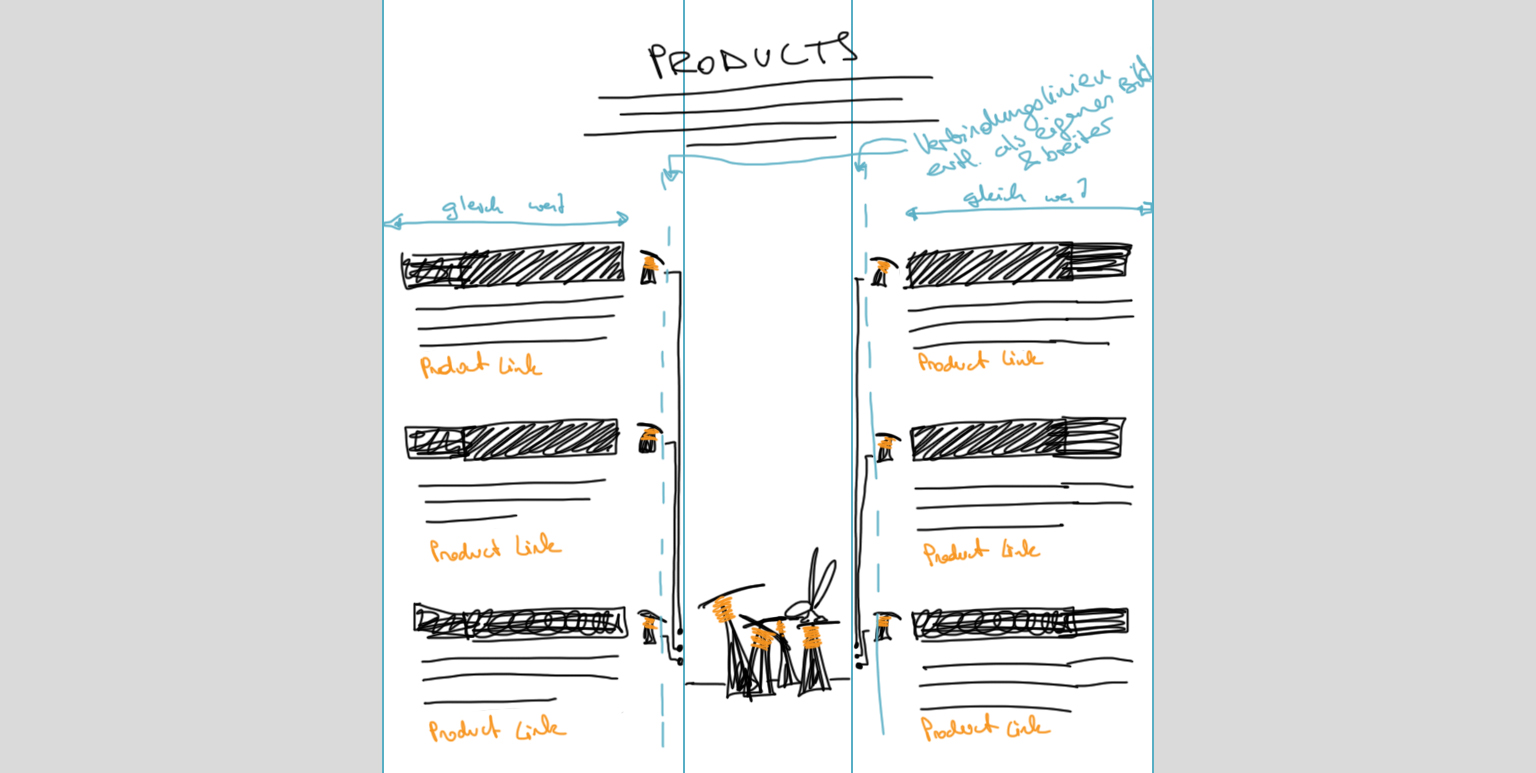 PRODUCTS
Verbindungslinien
evtl. als eigenes Bild
& breiter
gleich weit
gleich weit
Product Link
Product Link
Product Link
Product Link
Product Link
Product Link